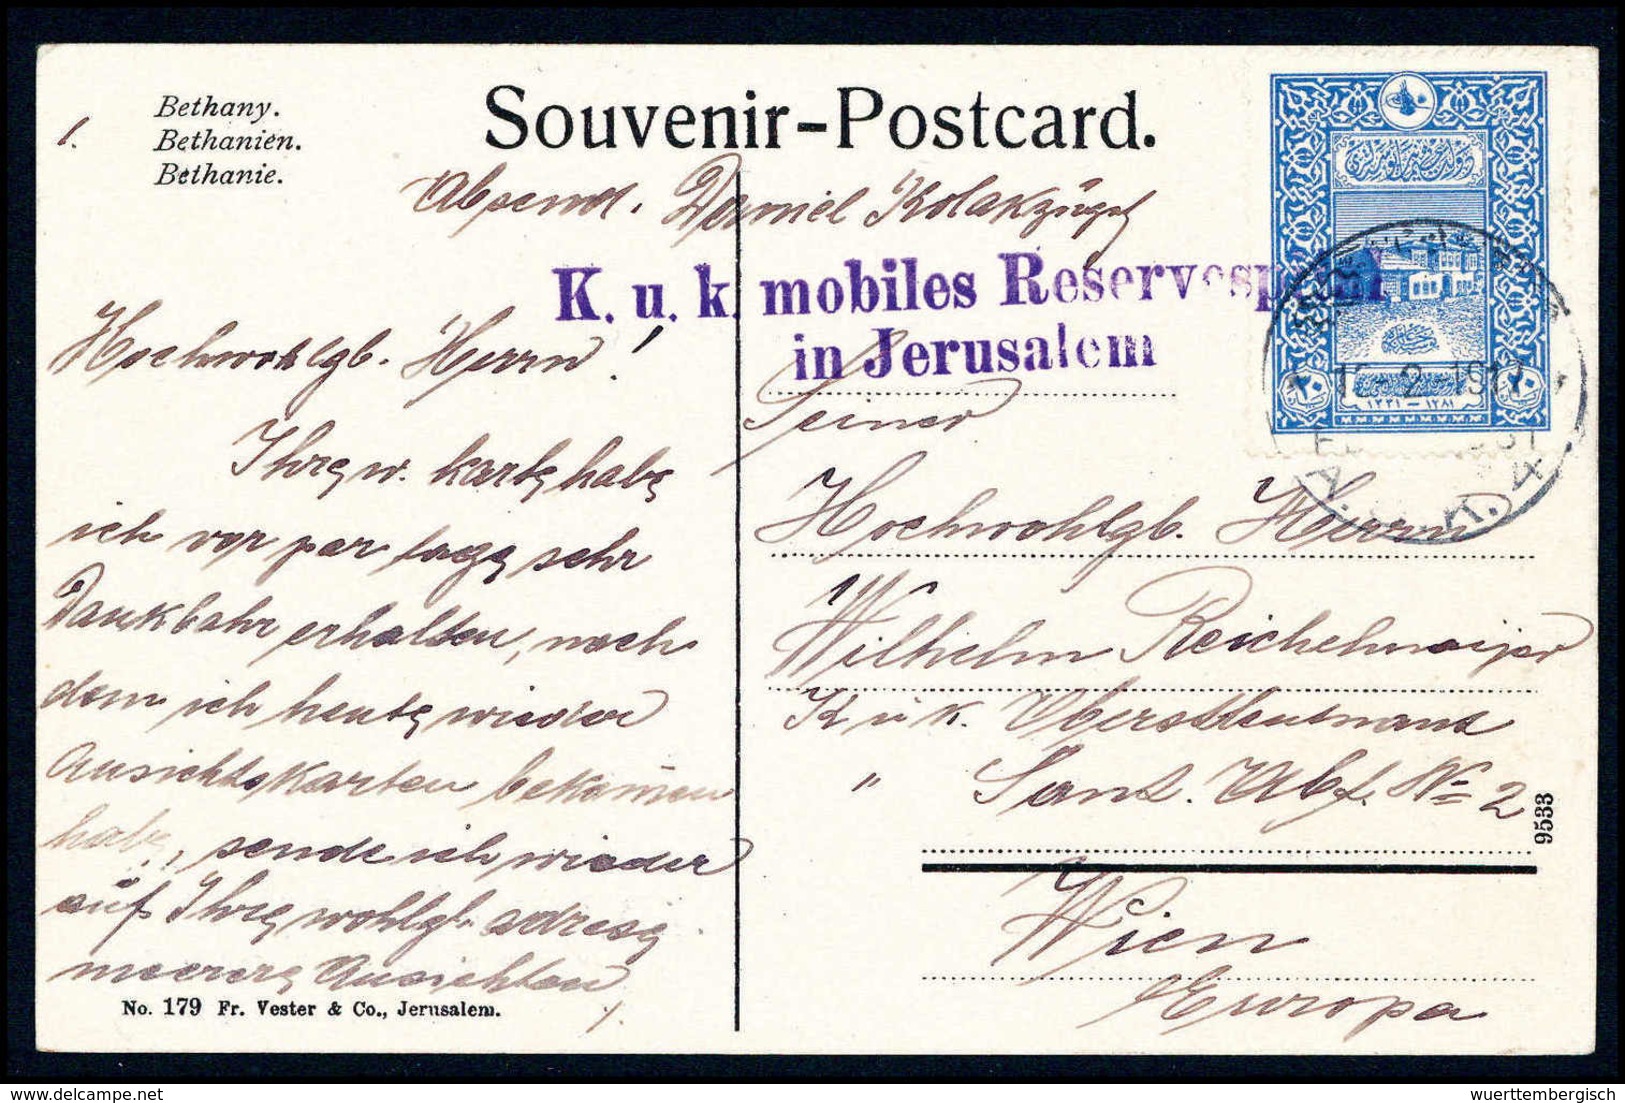 1.
Bethany.
Bethanien.
Bethanie.
Souvenir-Postcard.
Absend. Daniel
K. u. k. mobiles Reservespital
in Jerusalem
Hochwohlgb. Herrn!
Ihre w. Karte habe
ich vor par tage sehr
Dankbahr erhalten, noch
dem ich heute wieder
Ansichtskarten bekamen
habe, sende ich wieder
auf Ihre wohlgb. adrese
meerere Ansichten
No. 179 Fr. Vester & Co., Jerusalem.
Seiner
Hochwohlgb. Herrn
Wilhelm Reichelmaijer
K u k. Oberstleutnant
" Sanit. Abf. No 2
Wien
Europa
9533
2-1917
١٣٣١ — ١٢٨١
٢٠ ٢٠
wuerttembergisch